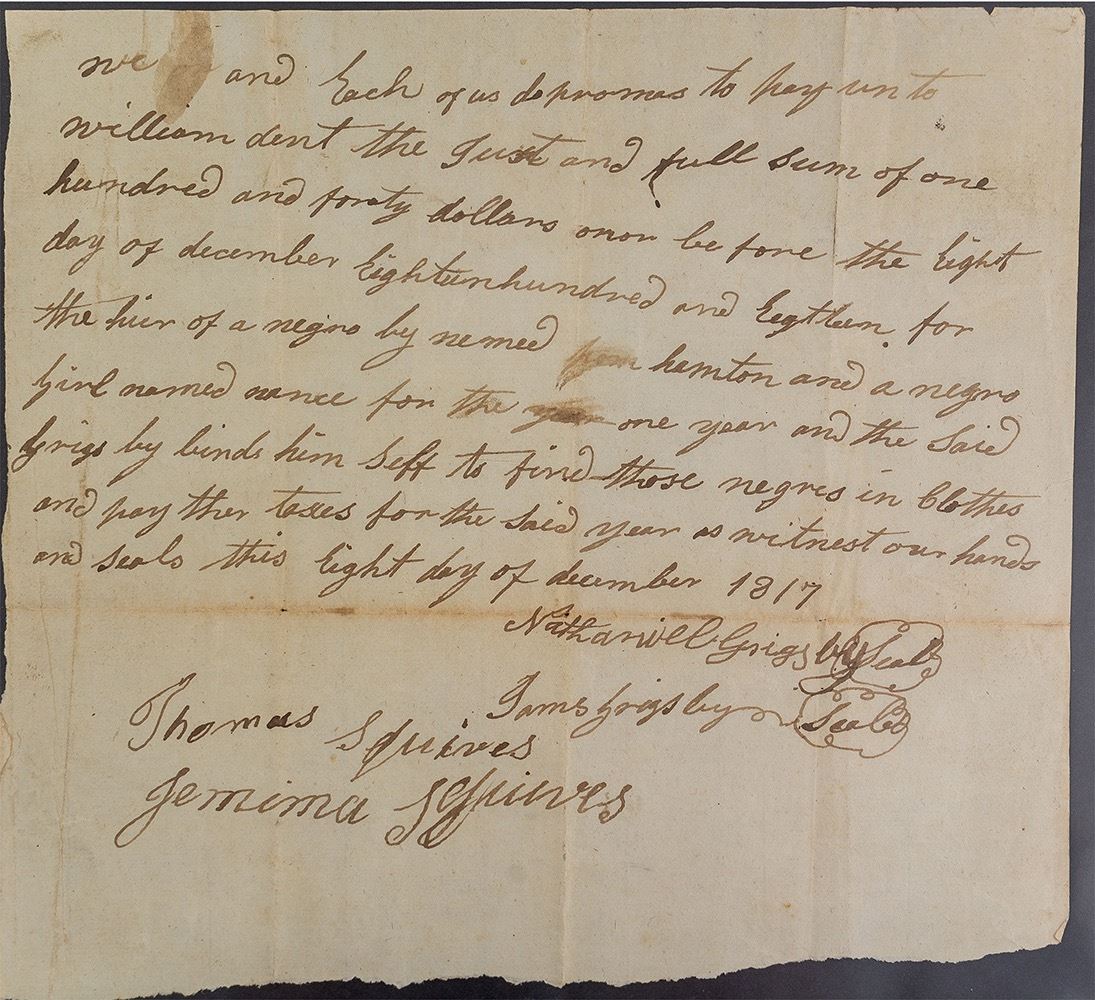 we and Each of us do promas to pay un to
william dent the Just and full sum of one
hundred and forty dollars on or be fore the Eight
day of december Eighteenhundred and Eegtken for
the hier of a negro by nemed hamton and a negro
girl named nance for the year one year and the Said
Grigs by binds him Self to find those negres in Clothes
and pay ther taxes for the Said year as witnest our hands
and seals this Eight day of december 1817
Nathaniell Grigsby Seal
Jams grigsby Seal
Thomas Squires
Jemima Squires